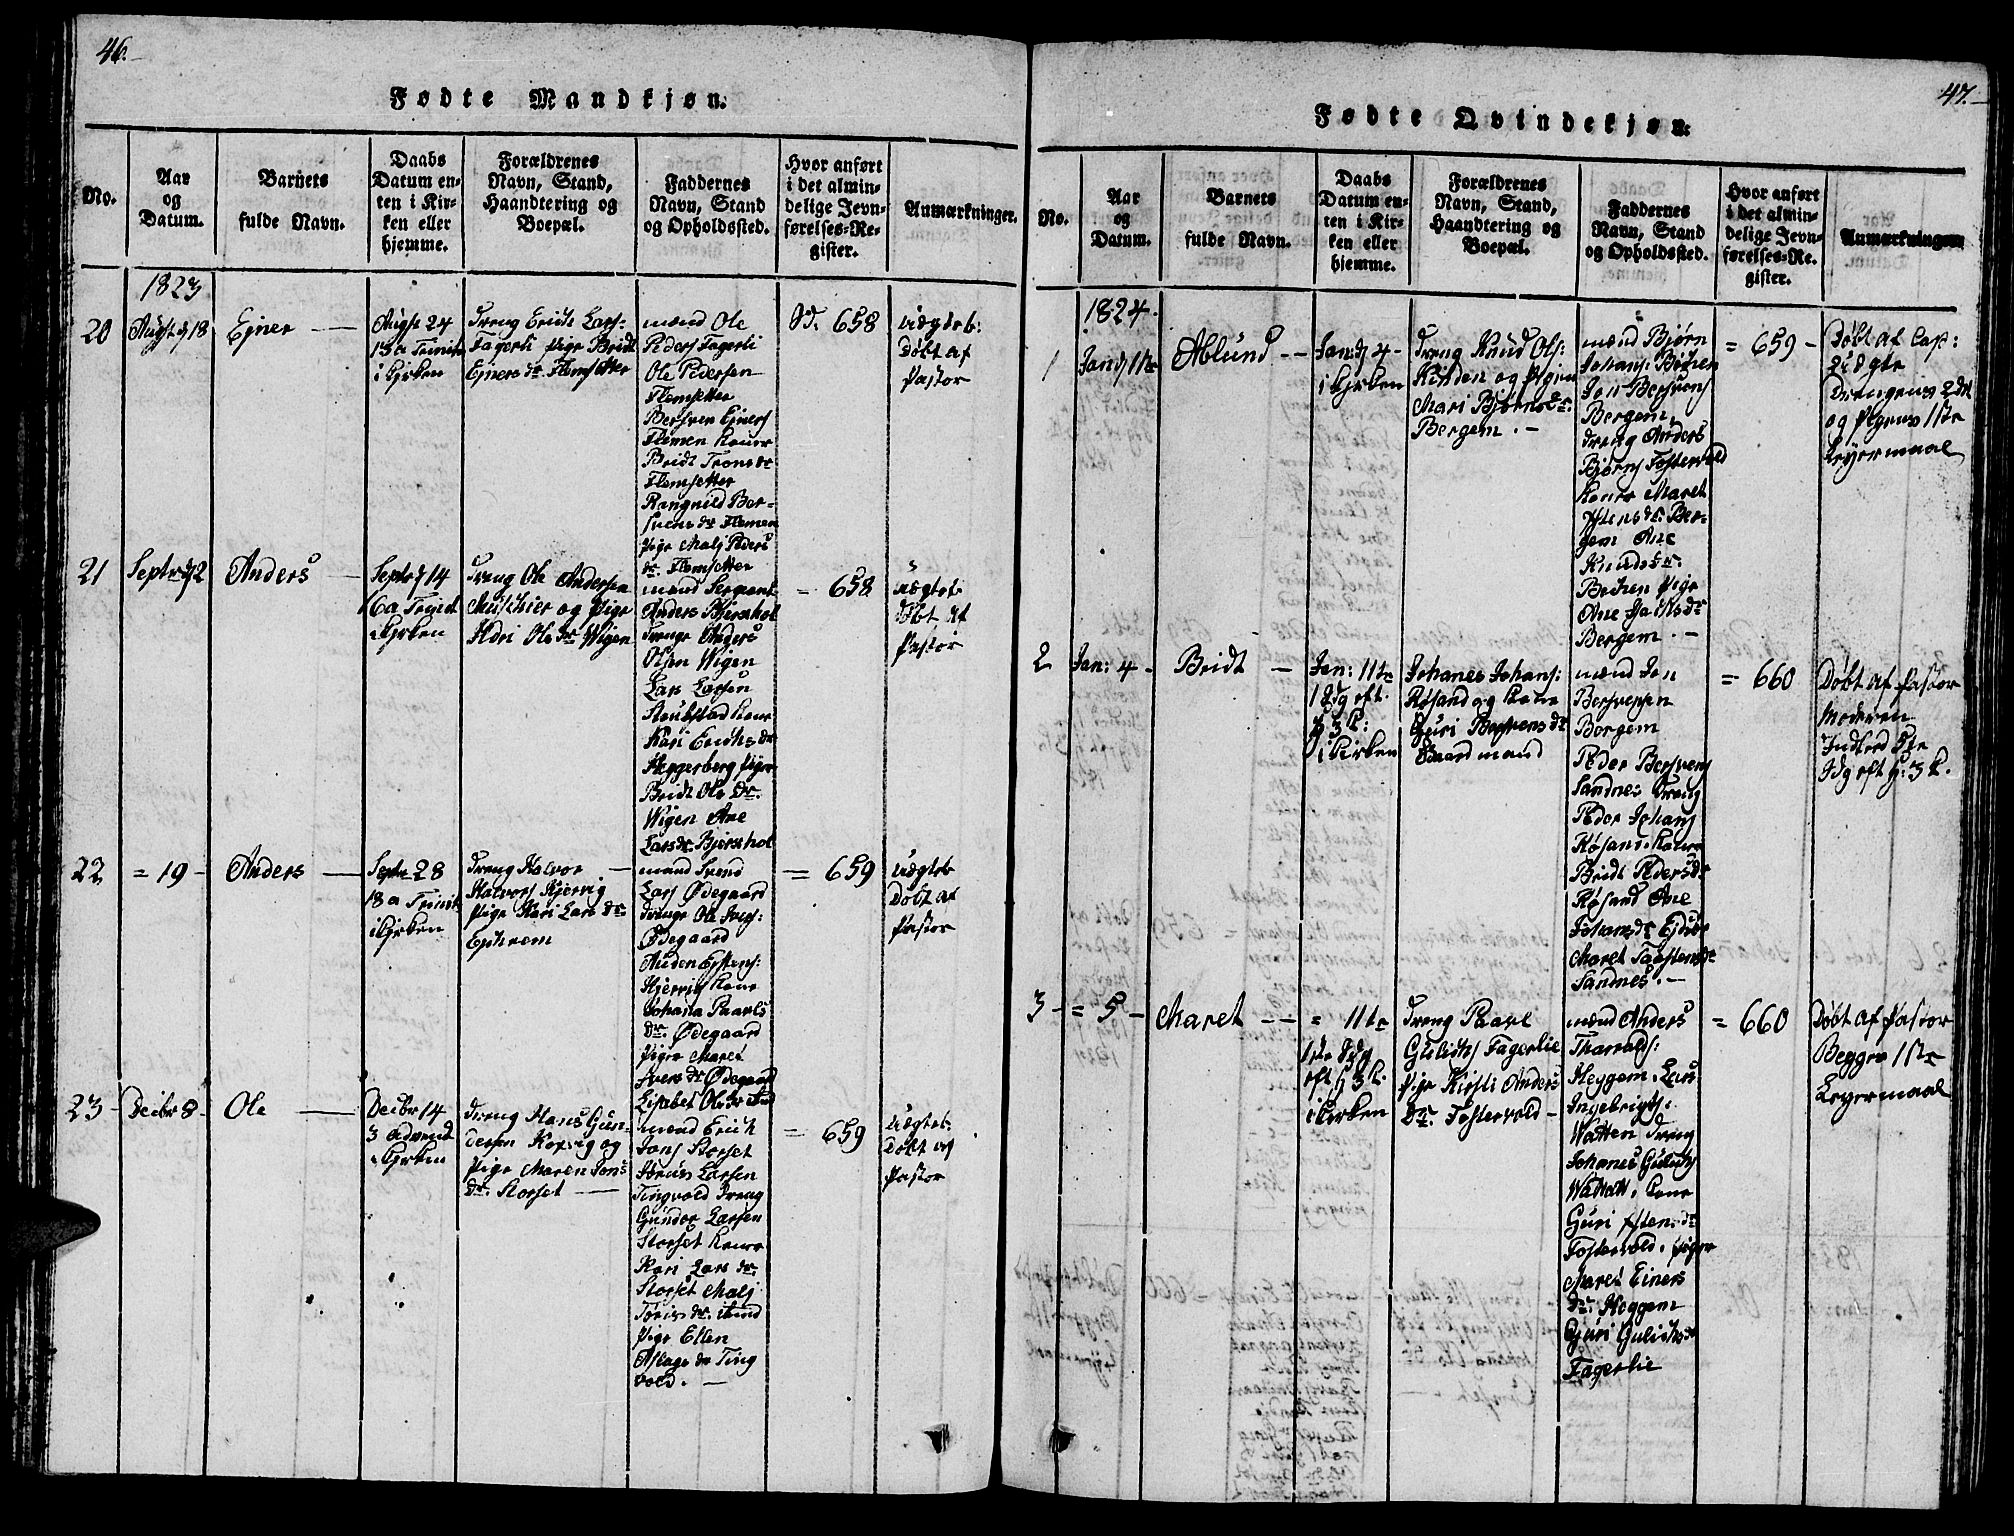 46.
Fødte Mandkjøn.
No.
Aar
og
Datum.
Barnets
fulde Navn.
Daabs
Datum en-
ten i Kir-
ken eller
hjemme.
Forældrenes
Navn, Stand,
Haandtering og
Boepæl.
Faddernes
Navn, Stand
og Opholdssted.
Hvor anført
i det almin-
delige Jevn-
førelses-Re-
gister.
Anmærkninger.
1823
20
Augst 18
Ejner
Augst 24
13 a Trinit
i Kirken
Dreng Erich Lars:
Fagerli Pige Bridt
Ejners dr Flemsetter
mænd Ole
Peders Fagerli
Ole Pedersen
Flemsetter
Bersven Ejners
Flemen Kone
Bridt Trons dr
Flemsetter
Rangnild Ber-
svens dr Flemen
Pige Malj Peders
dr. Flemsetter
658
uægte:
Døbt af
Pastor
21
Septr 2
Anders
Septr 14
16 a Trinit
i Kirken
Dreng Ole Andersen
og Pige
Ole dr Wigen
mænd Sergeant
Anders Bjerkhol
Drenge Anders
Olsen Wigen
Lars Larsen
Kone
Kari Erichs dr
Heggerberg Piger
Bridt Ole dr.
Wigen Ane
Lars dr. Bjerkhol
= 658
uægte:
Døbt af
Pastor
22
= 19
Anders
Septr 28
18 a Trinit
i Kirken
Dreng Halvor
Halvors Hjervig
Pige Kari Lars dr.
mænd Svend
Lars Ødegaard
Drenge Ole
Ødegaard
Auden
Kone
Johana Paavls
dr. Ødegaard
Pige Maret
Ivers dr Ødegaard
Lisabet Ole dr
= 659
uægte:
Døbt af
Pastor
23
Decbr 8
Ole
Decbr 14
3 Advent
i Kirken
Dreng Hans Gun-
dersen og
Pige Maren Jons
dr. Storset
mænd Erich
Jons Storset
Larsen
Tingvold Dreng
Gunder Larsen
Storset Kone
Kari Lars dr.
Storset Malj
Pige Ellen
Aslags dr Ting
vold.
= 659
uægte:
Døbt af
Pastor
47.
Fødte Qvindekjøn.
No.
Aar
og
Datum.
Barnets
fulde Navn.
Daabs
Datum en-
ten i Kir-
ken eller
hjemme.
Forældrenes
Navn, Stand,
Haandtering og
Boepæl.
Faddernes
Navn, Stand
og Opholdssted.
Hvor anført
i det almin-
delige Jevn-
førelses-Re-
gister.
Anmærkninger
1824.
1
Jan 1te
Ablund
Jan: 4
i Kirken
Dreng Knud Ols:
og Pigen
Mari Bjørns dr.
Bergem.
mænd Bjørn
Johans:
Jon Bersvens
Bergem,
Dreng Anders
Bjørns Fostervold
Koner Maret
Ystens dr. Ber-
gem Ane
Knuds dr.
Pige
Ane
Bergem.
= 659
Døbt af Cap:
uægte
Drengens 2det
og Pigens 1ste
Leyermaal
2
Jan: 4
Bridt
Jan: 11te
1 Sdg eft.
H 3 K:
i Kirken
Johanes Johans:
Røsand og Kone
Guri Bersvens dr
Gaardmand
mænd Jon
Bersvensen
Bergem
Peder Bersvens
Sandnes Dreng
Peder Johans
Røsand. Koner
Bridt Peders dr
Røsand Ane
Johans dr
Maret Taastens dr
Sandnes.
= 660
Døbt af Pastor
Moderen
Indled 5te
Sdg eft H: 3 K.
3
= 5
Maret
= 11te
1ste Sdg
eft H 3 K.
i Kirken
Dreng Paavl
Gulichs Fagerlie
Pige Kirsti Anders
dr. Fostervold
mænd Anders
Tharalds:
Heggem. Lars
Ingebrigts:
Watten Dreng
Johanes Gulichs
Kone
Guri Ystens dr
Fostervold. Piger
Maret Einers
dr. Heggem
Guri Gulichs dr
Fagerlie
= 660
Døbt af Pastor
Begges 1ste
Leyermaal